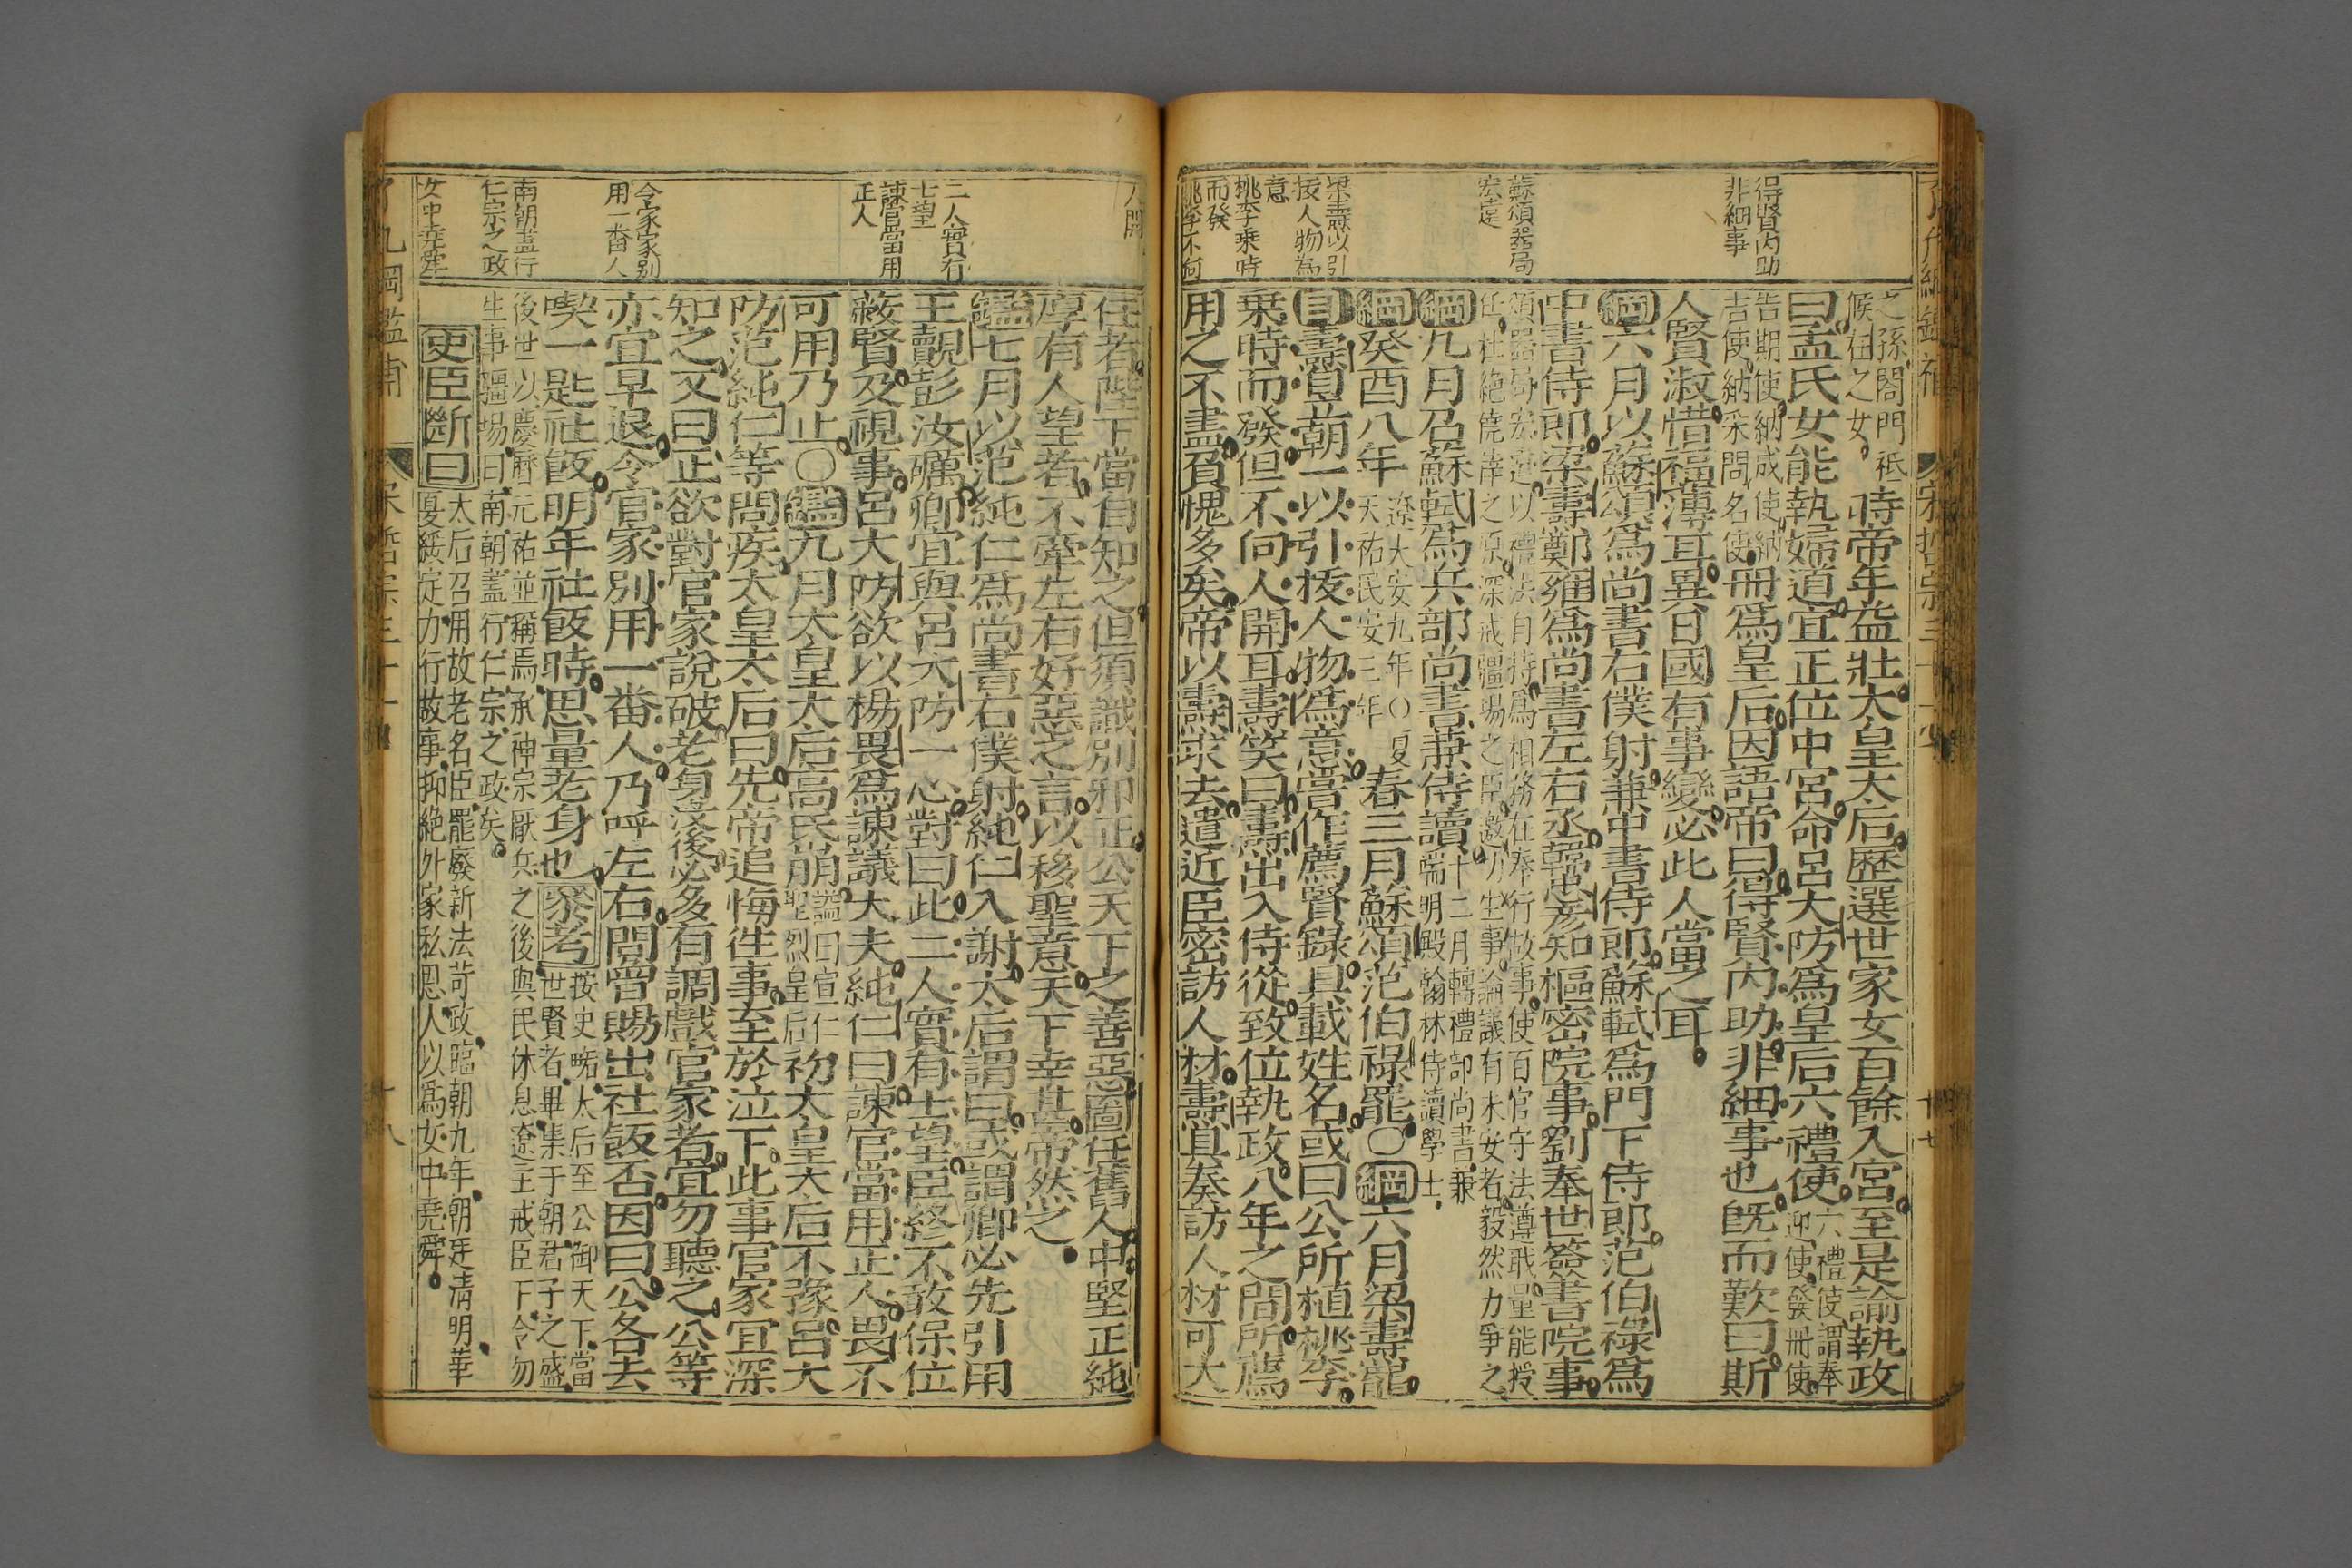 得賢内助
非細事
蘇頌器局
宏遠
梁燾以引
拔人物為
意
桃李乗時
而發
之孫閤門祗
候在之女
時帝年益壯太皇太后歷選世家女百餘入宮至是諭執政
曰孟氏女能執婦道宜正位中宮命呂大防爲皇后六禮使六禮使謂奉
迎使發冊使
告期使納成使納
吉使納采問名使冊爲皇后因語帝曰得賢内助非細事也旣而歎曰斯
人賢淑惜福薄耳異日國有事變必此人當之耳
綱六月以蘇頌爲尚書右僕射兼中書侍郎蘇轍爲門下侍郎范伯祿爲
中書侍郎梁燾鄭雍爲尚書左右丞韓忠彦知樞密院事劉奉世簽書院事
頌器局宏遠以禮法自持爲相務在奉行故事使百官守法遵職量能授
任杜絶僥倖之原深戒疆場之臣邀功生事論議有未安者毅然力爭之
綱九月召蘇軾爲兵部尚書兼侍讀十二月轉禮部尚書兼
端明殿翰林侍讀學士
綱癸酉八年遼大安九年○夏
天祐民安三年春三月蘇頌范伯祿罷○綱六月梁燾罷
目燾自立朝一以引拔人物爲意嘗作薦賢錄具載姓名或曰公所植桃李
乗時而發但不向人開耳燾笑曰燾出入侍從致位執政八年之間所薦
用之不盡負愧多矣帝以燾求去遣近臣密訪人材燾具奏訪人材可大
人開
二人實有
士望
諫官當用
正人
令家家别
用一畨人
南朝盖行
仁宗之政
女中堯舜
任者陛下當自知之但須識別邪正公天下之善惡圖任舊人中堅正純
厚有人望者不牽左右好惡之言以移聖意天下幸甚帝然之
鑑七月以范純仁爲尚書右僕射純仁入謝太后謂曰或謂卿必先引用
王覿彭汝礪卿宜與呂大防一心對曰此二人實有士望臣終不敢保位
蔽賢及視事呂大防欲以楊畏爲諫議大夫純仁曰諫官當用正人畏不
可用乃止○鑑九月太皇太后高氏崩謚曰宣仁
聖烈皇后初太皇太后不豫呂大
防范純仁等問疾太皇太后曰先帝追悔往事至於泣下此事官家宜深
知之又曰正欲對官家說破老身沒後必多有調戲官家者宜勿聽之公等
亦宜早退令官家別用一畨人乃呼左右問曾賜出社飯否因曰公各去
喫一匙社飯明年社飯時思量老身也叅考按史略太后至公御天下當
世賢者畢集于朝君子之盛
後世以慶曆元祐並稱焉承神宗厭兵之後與民休息遼主戒臣下令勿
生事疆場曰南朝盖行仁宗之政矣
史臣斷曰太后召用故老名臣罷廢新法苛政臨朝九年朝廷清明華
夏綏定力行故事抑絶外家私恩人以爲女中堯舜
十八